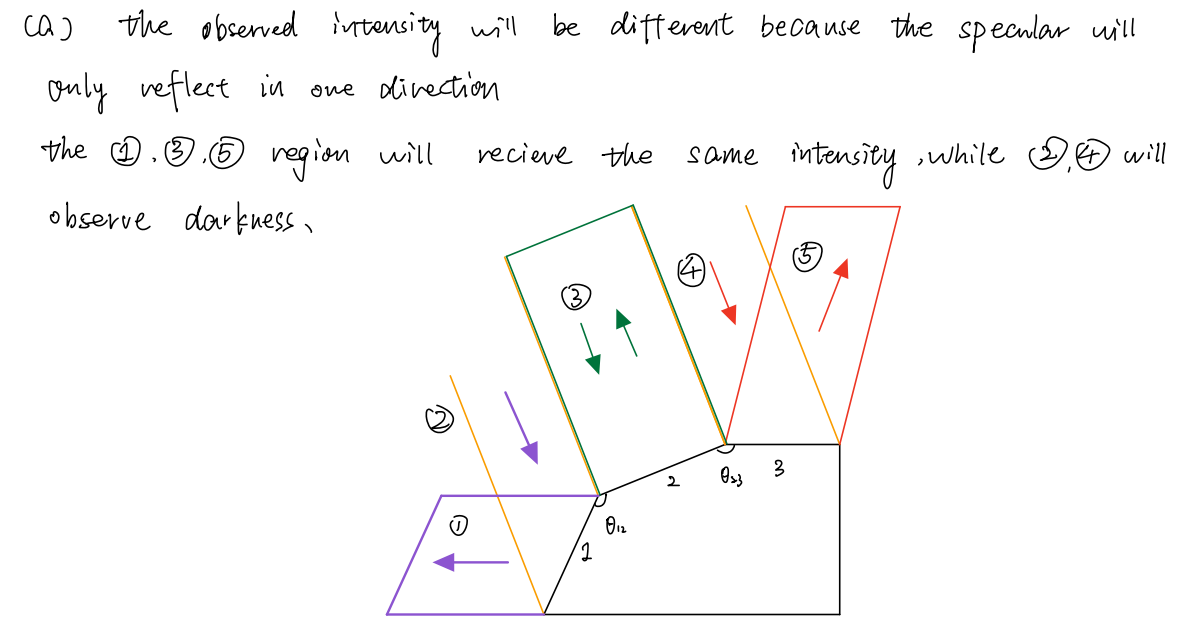 (a) the observed intensity will be different because the specular will
only reflect in one direction
the ①,③,⑤ region will recieve the same intensity, while ②,④ will
observe darkness、
④
⑤
③
②
2
θ₂₃
3
①
θ₁₂
1